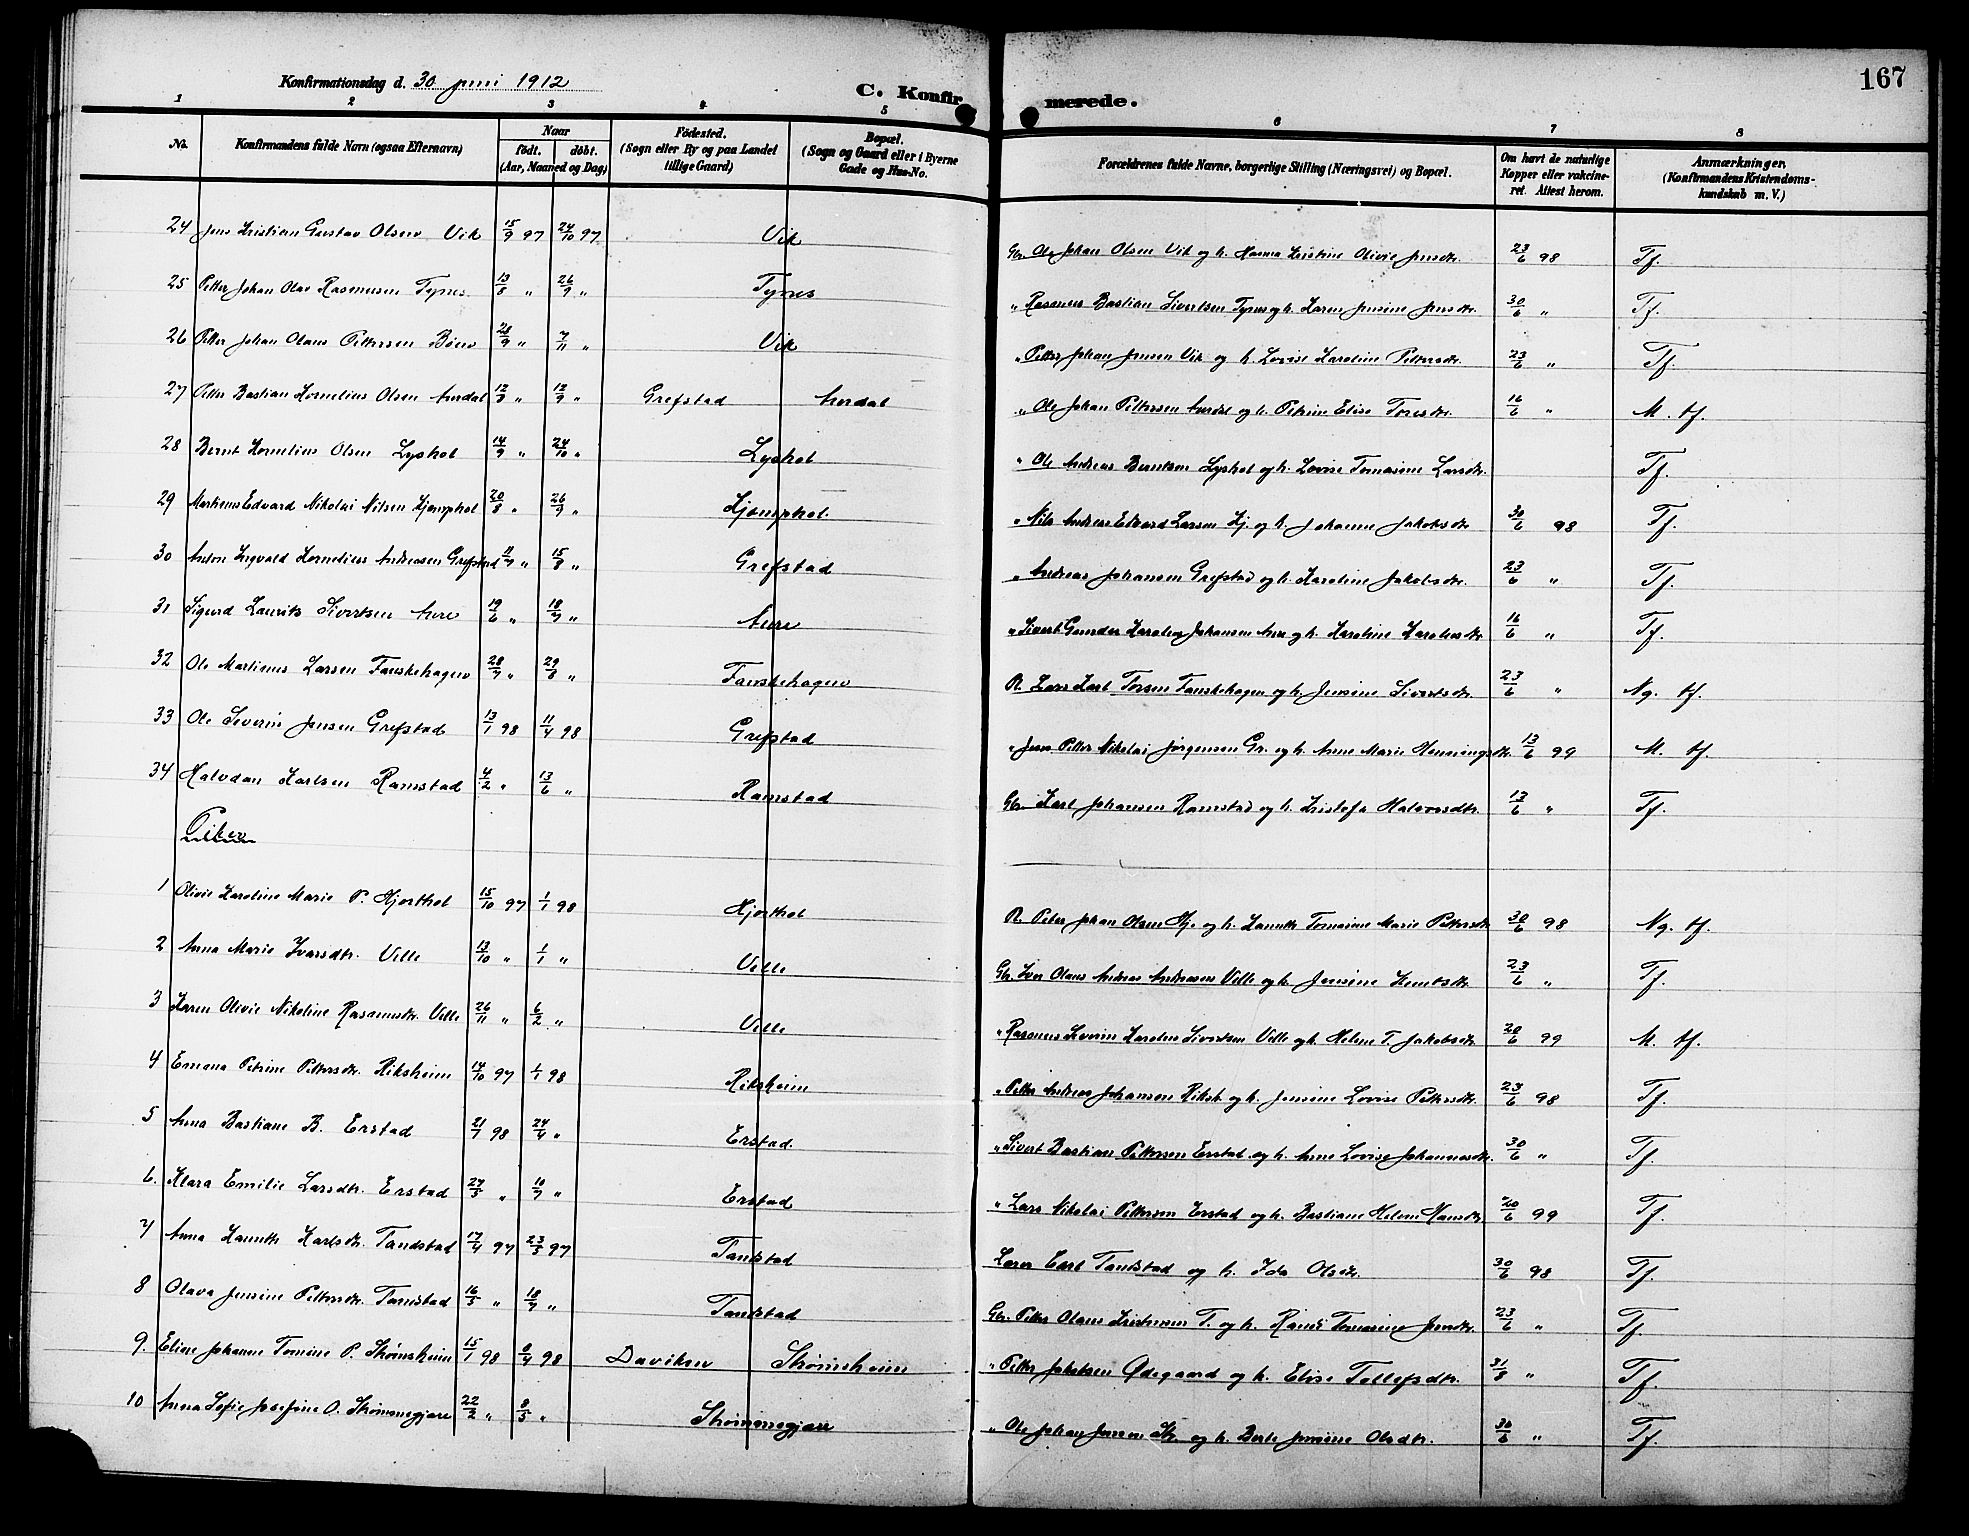 167
Konfirmationsdag d. 30 juni 1912
C. Konfirmerede.
1 2 3 4 5 6 7 8
No. Konfirmandens fulde Navn (ogsaa Efternavn) Naar født. døbt. (Aar, Maaned og Dag) Födested. (Sogn eller By og paa Landet tillige Gaard) Bopæl. (Sogn og Gaard eller i Byerne Gade og Hus-No. Forældrenes fulde Navne, borgerlige Stilling (Næringsvei) og Bopæl. Om havt de naturlige Kopper eller vakcineret. Attest herom. Anmærkninger. (Konfirmandens Kristendomskundskab m. V.)
24 Jens Kristian Gustav Olsen Vik 15/9 97 24/10 97 Vik Gbr. Ole Johan Olsen Vik og h. Hanna Kristine Olivie Jensdtr. 23/6 98 Tf.
25 Petter Johan Olav Rasmusen Tynes 13/8 " 26/9 " Tynes " Rasmus Bastian Sivertsen Tynes og h. Karen Jensine Jensdtr. 30/6 " Tf.
26 Petter Johan Olaus Pettersen Bøen 28/9 " 7/11 " Vik " Petter Johan Jensen Vik og h. Lovise Karoline Pettersdtr. 23/6 " Tf.
27 Petter Bastian Kornelius Olsen Aurdal 12/9 " Grefstad Aurdal " Ole Johan Pettersen Aurdal og h. Petrine Elise Toresdtr. 16/6 " M. tf.
28 Bernt Kornelius Olsen Lyshol 14/9 " 24/10 " Lyshol " Ole Andreas Berntsen Lyshol og h. Lovise Tomasine Larsdtr. Tf.
29 Martinus Edvard Nikolai Nilsen Hjemphol 20/8 " 26/9 " Hjemphol " Nils Andreas Edvard Larsen Hj. og h. Johanne Jakobsdtr. 30/6 98 Tf.
30 Anton Ingvald Kornelius Andreasen Grefstad 11/7 " 15/8 " Grefstad " Andreas Johansen Grefstad og h. Karoline Jakobsdtr. 23/6 " Tf.
31 Sigurd Laurits Sivertsen Aure 19/6 " 18/7 " Aure " Sivert Gunder Karolius Johansen Aure og h. Karoline Karolusdtr. 16/6 " Tf.
32 Ole Martinus Larsen Fauskehagen 28/7 " 29/8 " Fauskehagen R. Lars Karl Torsen Fauskehagen og h. Jensine Sivertsdtr. 23/6 " Ng. tf.
33 Ole Severin Jensen Grefstad 13/1 98 11/4 98 Grefstad " Jens Petter Nikolai Jørgensen Gr. og h. Anne Marie Henningsdtr. 13/6 99 M. tf.
34 Halvdan Karlsen Ramstad 4/2 " 13/6 " Ramstad Gbr. Karl Johansen Ramstad og h. Kristofa Halvorsdtr. 13/6 " Tf.
Piker
1 Olivie Karoline Marie P. Hjorthol 15/10 97 1/1 98 Hjorthol R. Peter Johan Olsen Hj. og h. Lanette Tomasine Marie Pettersdtr. 30/6 98 Ng. tf.
2 Anna Marie Ivarsdtr. Velle 13/10 " 1/1 " Velle Gbr. Iver Olaus Andreas Andreasen Velle og h. Jensine Knutsdtr. 23/6 " Tf.
3 Karen Olivie Nikoline Rasmusdtr. Velle 26/11 " 6/2 " Velle " Rasmus Severin Karolus Sivertsen Velle og h. Helene T. Jakobsdtr. 20/6 99 M. tf.
4 Emma Petrine Pettersdtr. Riksheim 14/10 97 1/1 98 Riksheim " Petter Andreas Johansen Riksh. og h. Jensine Lovise Pettersdtr. 23/6 98 Tf.
5 Anna Bastiane B. Erstad 21/1 98 24/4 " Erstad " Sivert Bastian Pettersen Erstad og h. Anne Lovise Johannesdtr. 30/6 " Tf.
6. Klara Emilie Larsdtr. Erstad 27/5 " 10/7 " Erstad " Lars Nikolai Pettersen Erstad og h. Bastiane Helene Hansdtr. 20/6 99 Tf.
7 Anna Lanette Karlsdtr. Tandstad 17/4 97 23/5 97 Tandstad Lærer Carl Tandstad og h. Ida Olsdtr. 30/6 98 Tf.
8 Olava Jensine Pettersdtr. Tandstad 16/5 " 18/7 " Tandstad Gbr. Petter Olaus Kristensen T. og h. Randi Tomasine Jensdtr. 23/6 " Tf.
9. Eline Johanne Tomine P. Strømsheim 15/1 98 8/4 98 Daviken Strømsheim " Petter Jakobsen Ødegaard og h. Elise Tollefsdtr. 31/8 " Tf.
10 Anna Sofie Josefine O. Strømmegjære 22/2 " 8/5 " Strømmegjære " Ole Johan Jensen Str. og h. Berte Jensine Olsdtr. 30/6 " Tf.